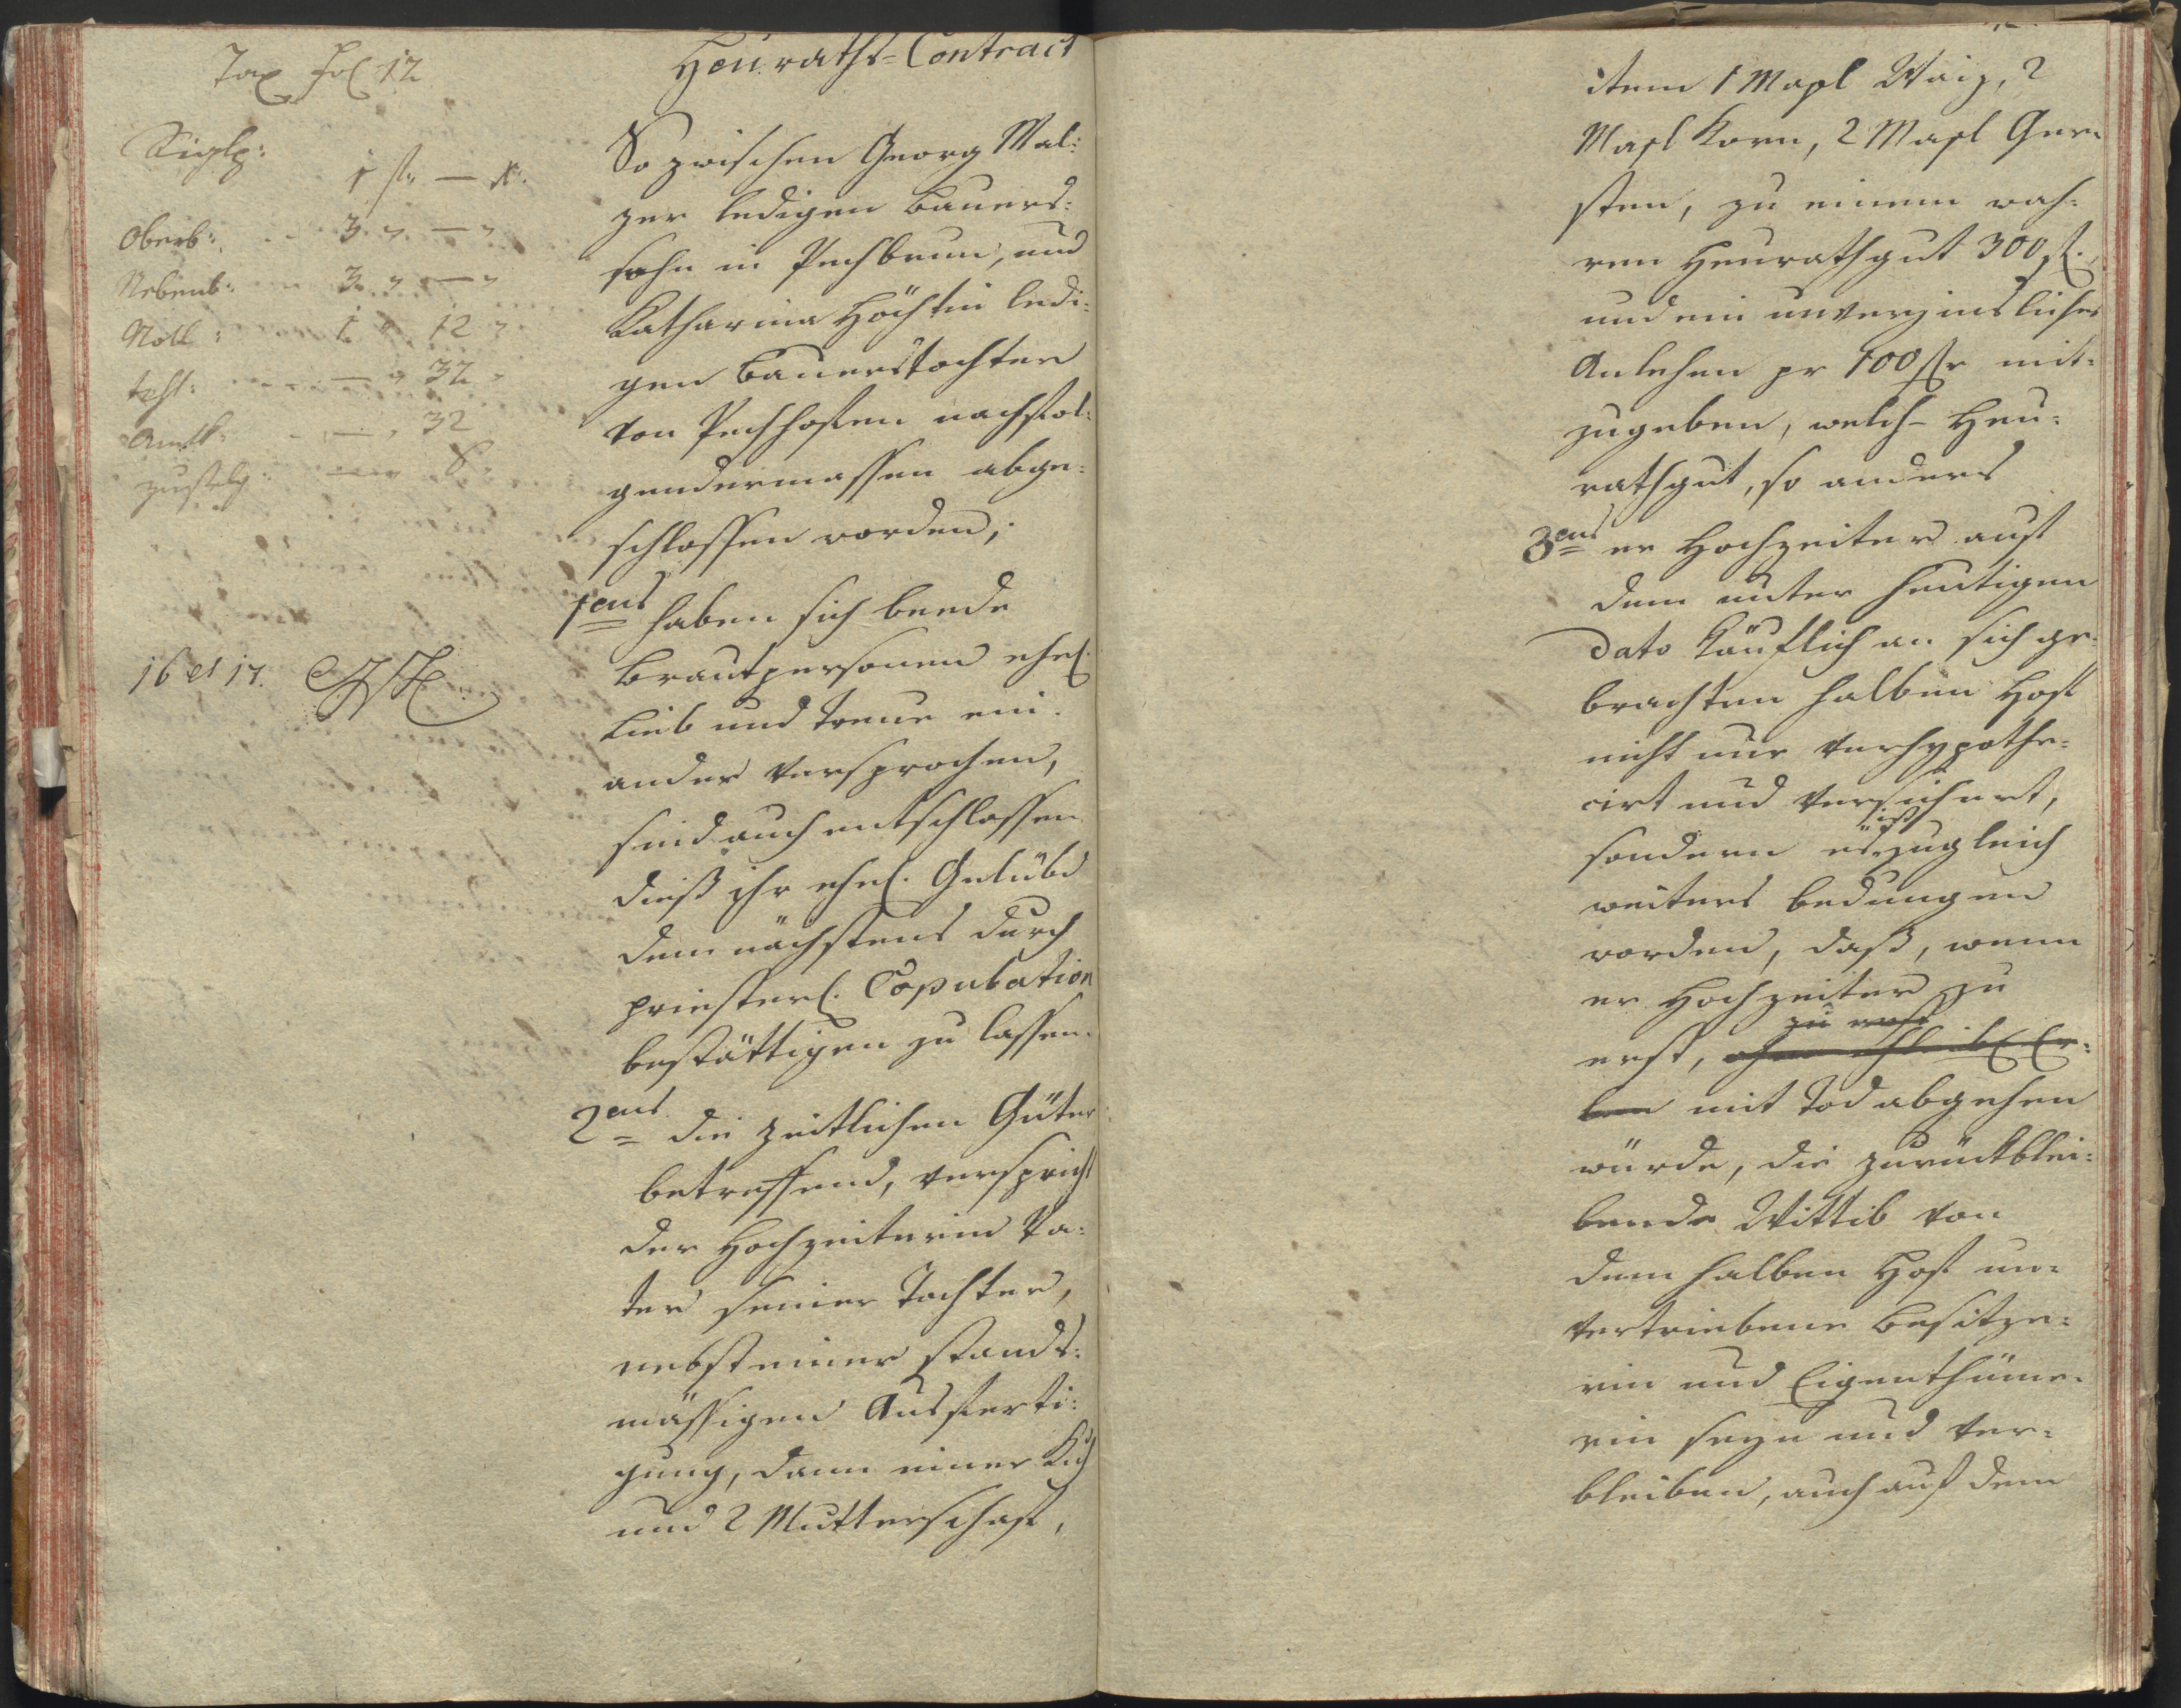 Tax fol 12
Siglg:
1 fl. — x.
Oberb: 3 " — "
Nebenb: 3 " — "
Notl: 1 " 12 "
— " 32 "
Amtl: — " 32
Zustelg: — " 8 "
16 et 17.
Heuraths-Contract
So zwischen Georg Mal:
zer ledigen Bauers:
sohn in Pechbrun, und
Katharina Höchtin ledi:
gen Bauerstochter
von Pechhofen nachfol:
gendermassen abge:
schlossen worden;
1ens haben sich beede
Brautpersonen ehel.
Lieb und Treue ein:
ander versprochen,
sind auch entschlossen
dieß ihr ehel. Gelübd
dem nächstens durch
priesterl. Copulation
bestättigen zu lassen.
2ens die zeitlichen Güter
betreffend, verspricht
der Hochzeiterin Va:
ter seiner Tochter,
nebst einer stands:
mässigen Ausferti:
gung, dann einer Kuh
und 2 Mutterschaf,
item 1 Maßl Waiz, 2
Maßl Korn, 2 Maßl Ger:
sten, zu einem wah:
ren Heurathgut 300 fl.
und ein unverzinsliches
Anlehen pr 100 fl mit:
zugeben, welch Heu:
rathgut, so anders
3ens er Hochzeiter auf
dem unter heutigen
dato käuflich an sich ge:
brachten halben Hof
nicht nur verhypothe:
cirt und versichert,
ist
sondern es zugleich
weiters bedungen
worden, daß, wenn
er Hochzeiter zu
zu erst
erst, ohne ehleibl. Er:
ben mit Tod abgehen
würde, die zurückblei:
bende Wittib von
dem halben Hof un:
vertriebene Besitze:
rin und Eigenthüme:
rin seyn und ver:
bleiben, auch auf dem